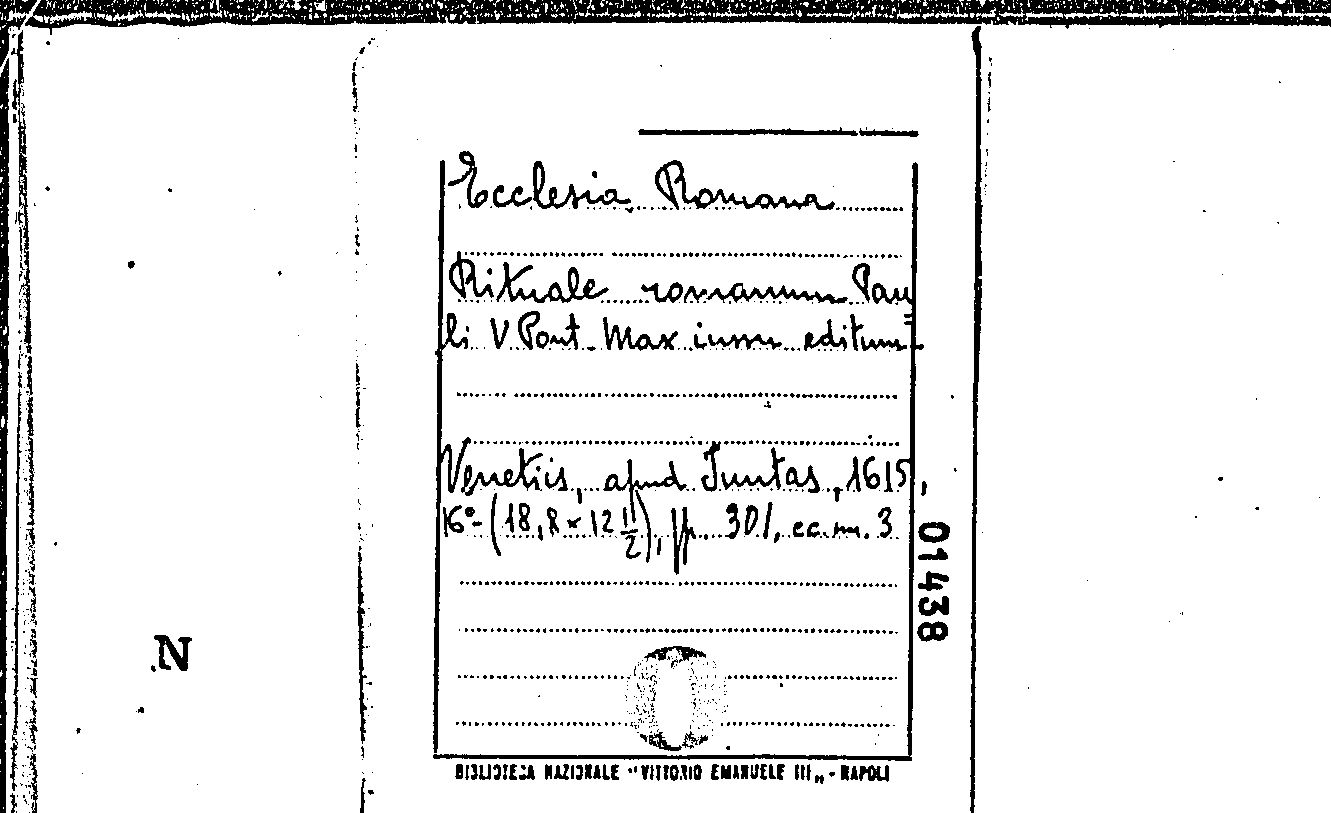 Ecclesia Romana
Rituale romanum Pau
li V Pont. Max iussu editum
Venetiis, apud Iuntas, 1615,
16°- (18,8 x 12 1/2), pp. 301, cc. nn. 3
01438
N
BIBLIOTECA NAZIONALE "VITTORIO EMANUELE III„ - NAPOLI